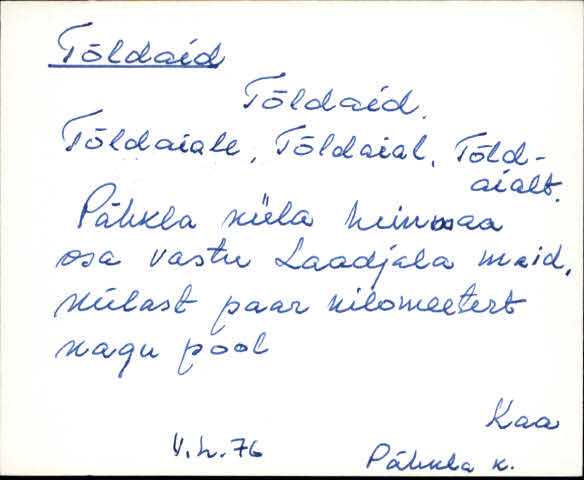 Tõldaid
Tõldaid.
Tõldaiale, Tõldaial, Tõld-
aialt.
Pähkla küla heinamaa
osa vastu Laadjala maid,
külast paar kilomeetert
kagu pool
Kaa
V.L. 76
Pähkla k.